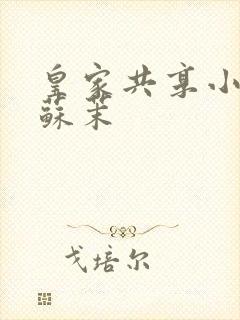 皇家共享小
蘇茉
戈培尔